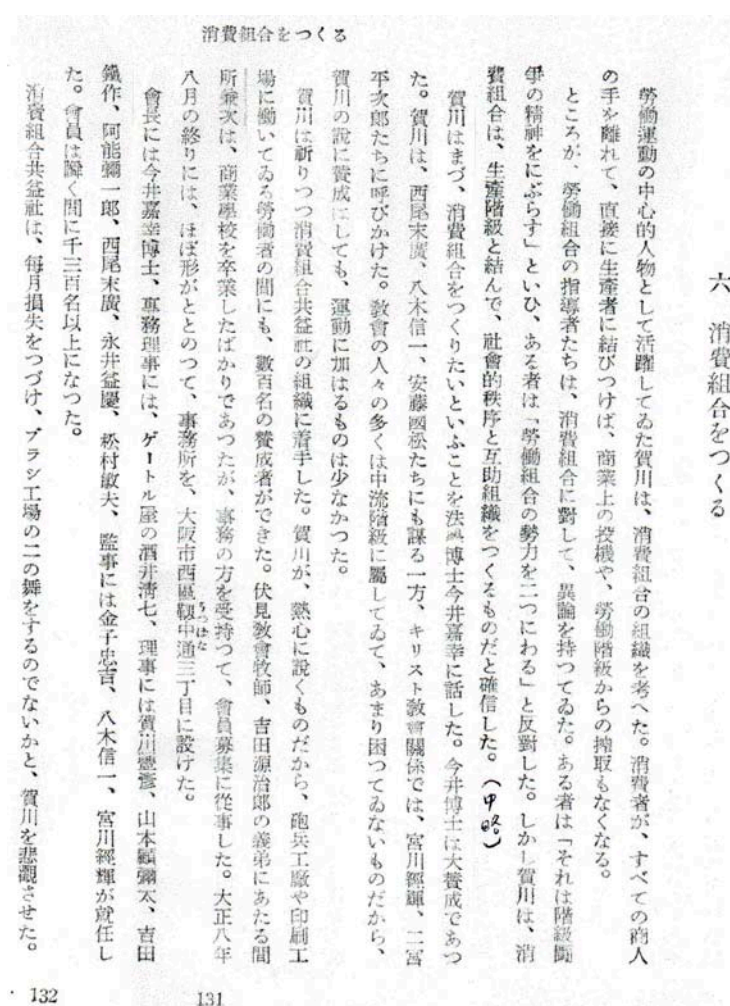 消費組合をつくる
六　消費組合をつくる
勞働運動の中心的人物として活躍してゐた賀川は、消費組合の組織を考へた。消費者が、すべての商人
の手を離れて、直接に生産者に結びつけば、商業上の投機や、勞働階級からの搾取もなくなる。
ところが、勞働組合の指導者たちは、消費組合に對して、異論を持つてゐた。ある者は「それは階級鬪
爭の精神をにぶらす」といひ、ある者は「勞働組合の勢力を二つにわる」と反對した。しかし賀川は、消
費組合は、生產階級と結んで、社會的秩序と互助組織をつくるものだと確信した。（中略）
賀川はまづ、消費組合をつくりたいといふことを法學博士今井嘉幸に話した。今井博士は大贊成であつ
た。賀川は、西尾末廣、八木信一、安藤國松たちにも謀る一方、キリスト敎會關係では、宮川經輝、二宮
平次郎たちに呼びかけた。敎會の人々の多くは中流階級に屬してゐて、あまり困つてゐないものだから、
賀川の說に贊成はしても、運動に加はるものは少なかつた。
賀川は祈りつつ消費組合共益社の組織に着手した。賀川が、熱心に說くものだから、砲兵工廠や印刷工
場に働いてゐる勞働者の間にも、數百名の贊成者ができた。伏見敎會牧師、吉田源治郎の義弟にあたる間
所兼次は、商業學校を卒業したばかりであつたが、事務の方を受持つて、會員募集に從事した。大正八年
八月の終りには、ほぼ形がととのつて、事務所を、大阪市西區靱中通三丁目に設けた。
うつぼな
會長には今井嘉幸博士、專務理事には、ゲートル屋の酒井淸七、理事には賀川豐彥、山本顧彌太、吉田
鐵作、阿能彌一郎、西尾末廣、永井益慶、松村敏夫、監事には金子忠吉、八木信一、宮川經輝が就任し
た。會員は瞬く間に千三百名以上になつた。
消費組合共益社は、每月損失をつづけ、ブラシ工場の二の舞をするのでないかと、賀川を悲觀させた。
131
132